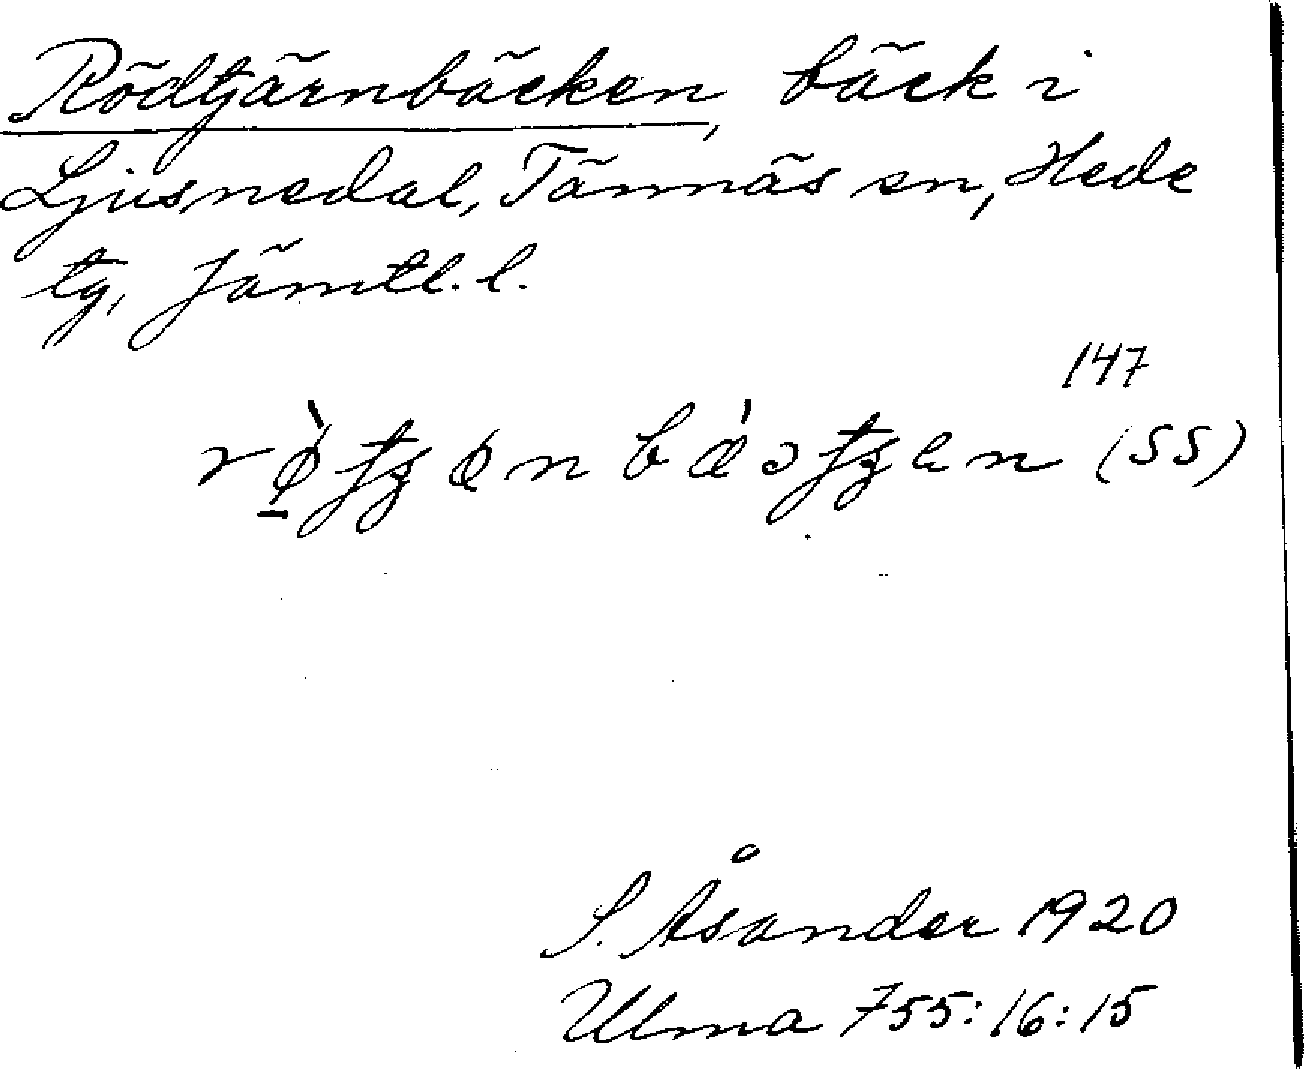 Rödtjärnbäcken, bäck i
Ljusnedal, Tännäs sn, Hede
tg, Jämtl. l.
147
(SS)
S. Åsander 1920
Ulma 755:16:15